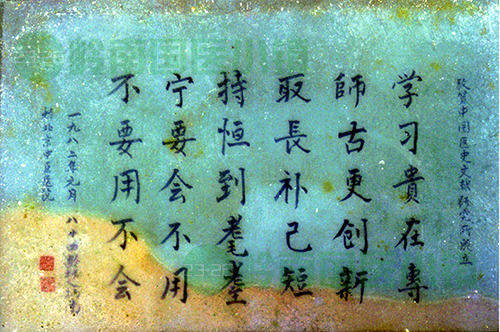 敬贺中国医史文献研究所成立
学习貴在專
師古更创新
取長补己短
持恒到耄耋
宁要会不用
不要用不会
一九八二年元月
于北京中医医院